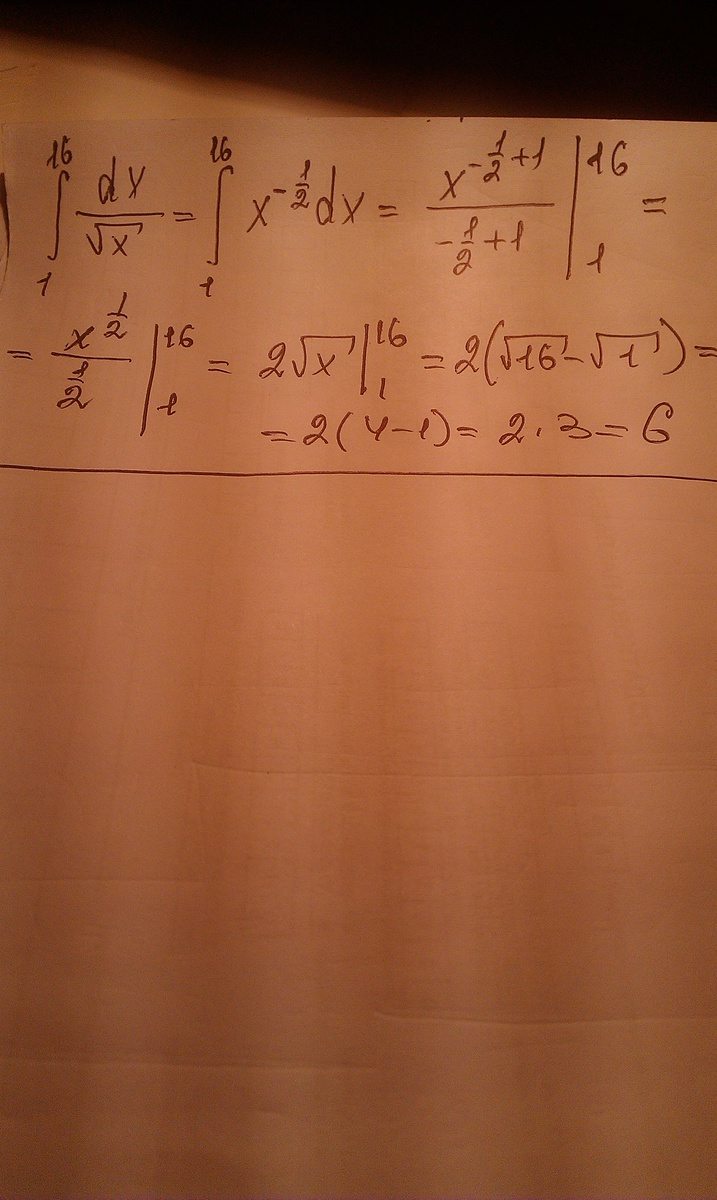 ∫₁¹⁶ dx/√x = ∫₁¹⁶ x^(-1/2) dx = x^(-1/2+1)/(-1/2+1) |₁¹⁶ =
= x^(1/2)/(1/2) |₁¹⁶ = 2√x |₁¹⁶ = 2(√16 - √1) =
= 2(4-1) = 2·3 = 6